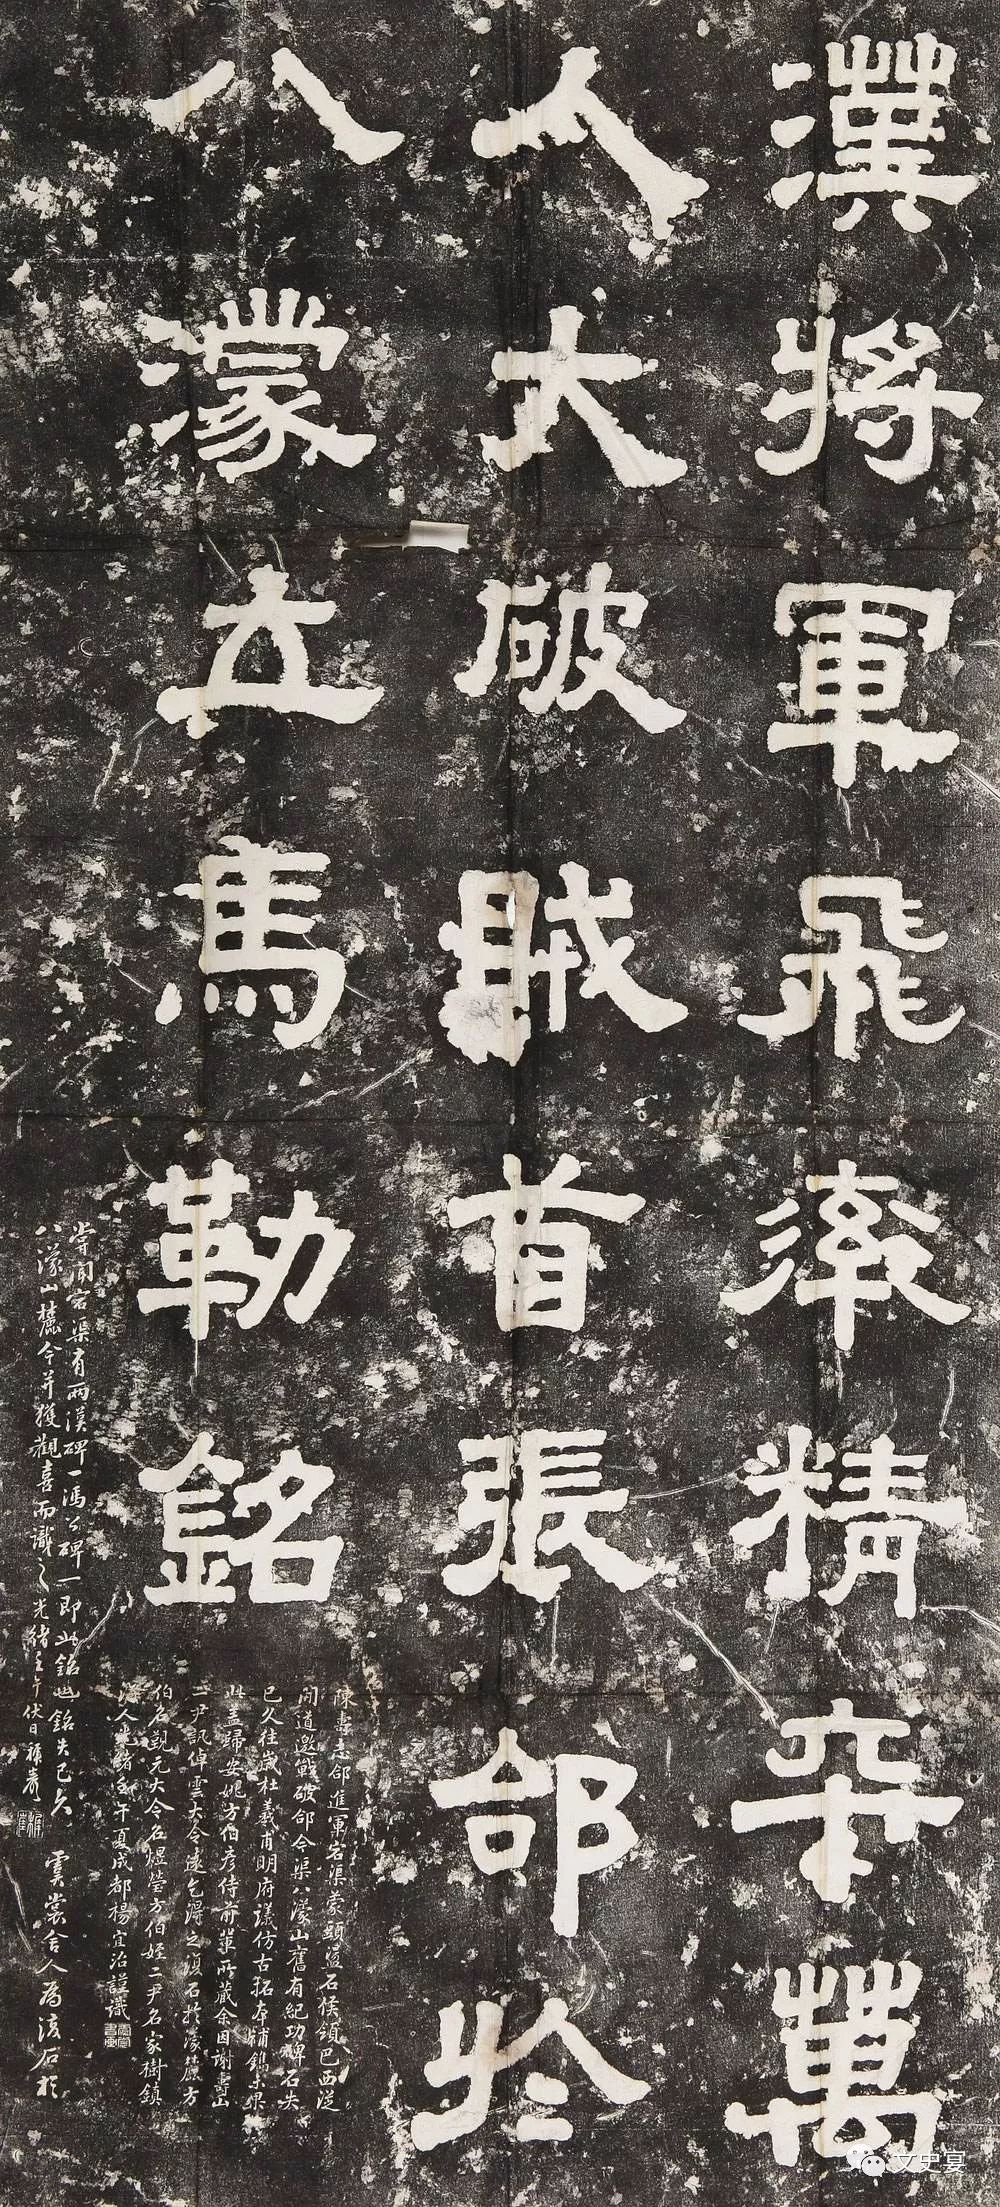 漢將軍飛率精卒萬
人大破賊首張郃於
八濛立馬勒銘
陳壽志郃進軍宕渠蒙頭盪石矦領巴西從
間道邀戰破郃今渠八濛山舊有紀功碑石失
已久往歲杜義甫明府謀仿古拓本補鐫未果
此蓋歸安姚方伯彥侍前輩所藏余因謝壽山
二尹訊倬雲大令遠乞得之湏石於濛麓方
伯名覲元大令名煜瑩方伯姪二尹名家樹鎮
人光緒壬午夏成都楊宜治謹識
嘗聞宕渠有兩漢碑一馮公碑一即此銘此銘失已久 霓裳舍人為渡石於
八濛山麓今并獲觀喜而識之光緒壬午伏日
文史宴